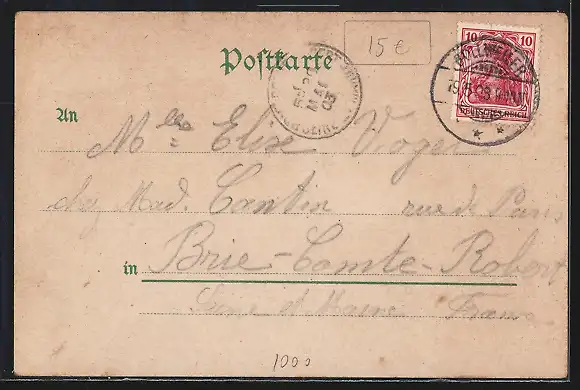 15 €
Postkarte
10 10
DEUTSCHES REICH
BOLLWEILER
03
An Mlle Elise Vogel
chez Mad. Cantin rue de Paris
in Brie-Comte-Robert
Seine et Marne France
1000